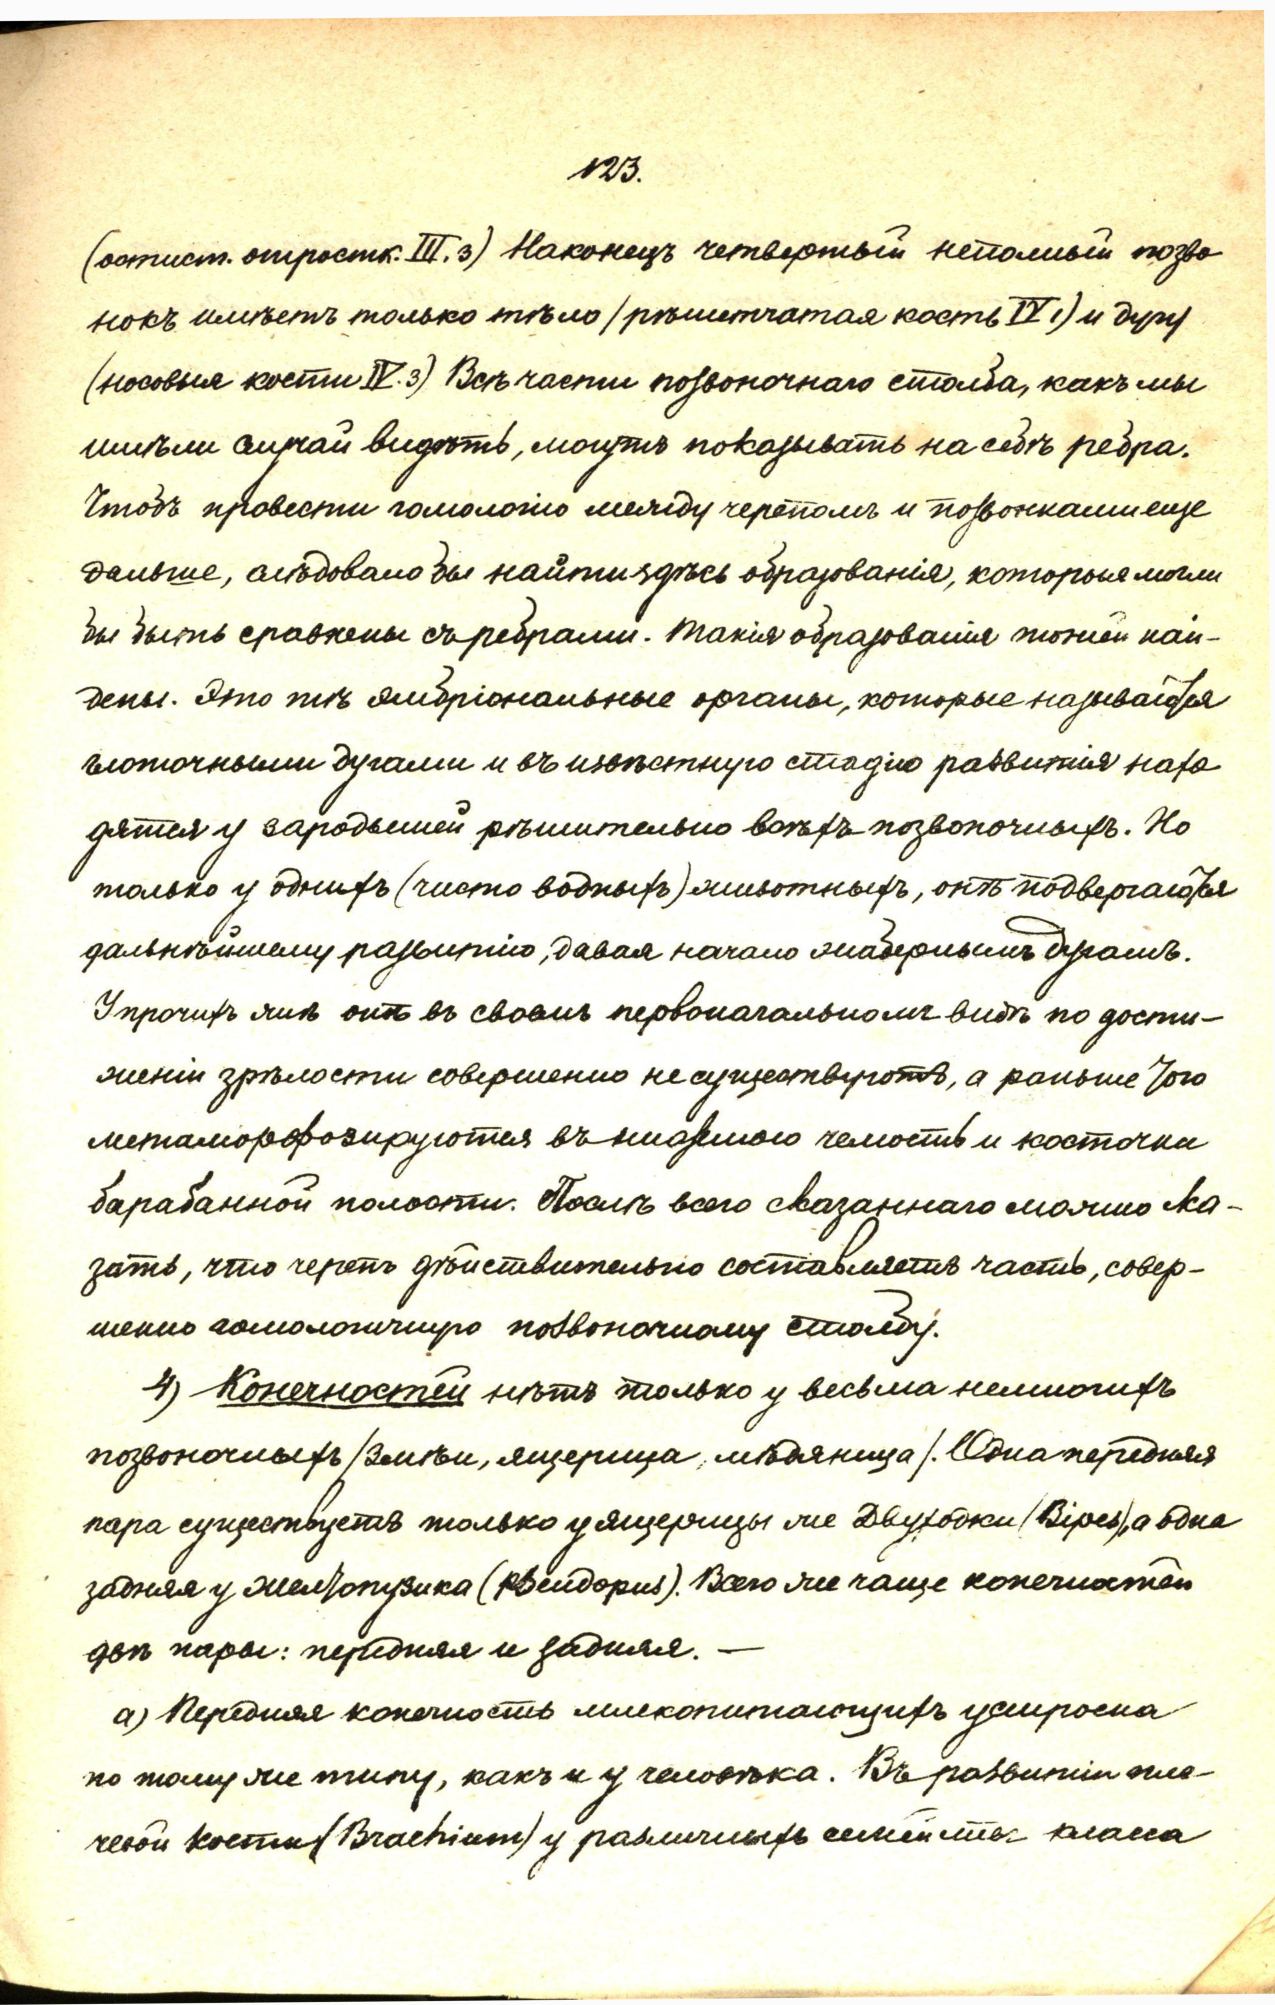 123.
(остист. отростк. III. 3) Наконецъ четвертый неполный позво
нокъ имѣетъ только тѣло /рѣшетчатая кость IV 1) и дугу
(носовыя кости IV. 3) Всѣ части позвоночнаго столба, какъ мы
имѣли случай видѣть, могутъ показывать на себѣ ребра.
Чтобъ провести гомологію между черепомъ и позвонками еще
дальше, слѣдовало бы найти здѣсь образованія, которыя могли
бы быть сравнены съ ребрами. Такія образованія най-
дены. Это тѣ эмбріональные органы, которые называются
глоточными дугами и въ извѣстную стадію развитія нахо
дятся у зародышей рѣшительно всѣхъ позвоночныхъ. Но
только у однихъ (чисто водныхъ) животныхъ, онѣ подвергаются
дальнѣйшему развитію, давая начало жабернымъ дугамъ.
У прочихъ же онѣ въ своемъ первоначальномъ видѣ по дости-
женіи зрѣлости совершенно не существуютъ, а раньше того
метаморфозируются въ нижнюю челюсть и косточки
барабанной полости. Послѣ всего сказаннаго можно ска-
зать, что черепъ дѣйствительно составляетъ часть, совер-
шенно гомологичную позвоночному столбу.
4) Конечностей нѣтъ только у весьма немногихъ
позвоночныхъ /змѣи, ящерица, мѣдяница/. Одна передняя
пара существуетъ только у ящерицы же Двуходки /Bipes), а одна
задняя у желтопузика (Pseudopus). Всего же чаще конечностей
двѣ пары: передняя и задняя. —
а) Передняя конечность млекопитающихъ устроена
по тому же типу, какъ и у человѣка. Въ развитіи пле-
чевой кости (Brachium) у различныхъ класса